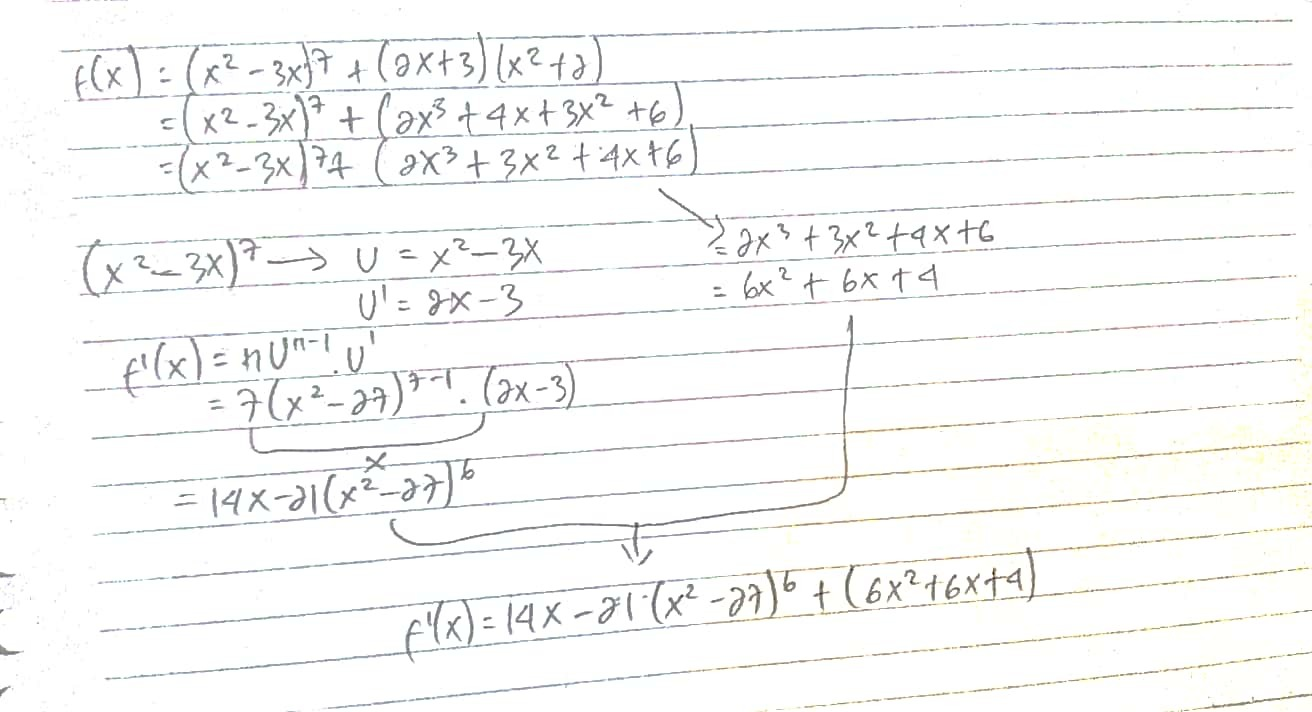 f(x) = (x² - 3x)⁷ + (2x+3)(x²+2)
= (x² - 3x)⁷ + (2x³ + 4x + 3x² + 6)
= (x² - 3x)⁷ + (2x³ + 3x² + 4x + 6)
= 2x³ + 3x² + 4x + 6
= 6x² + 6x + 4
(x² - 3x)⁷ → U = x² - 3x
U' = 2x - 3
f'(x) = nUⁿ⁻¹. U'
= 7(x² - 27)⁷⁻¹. (2x - 3)
x
= 14x - 21(x² - 27)⁶
f'(x) = 14x - 21·(x² - 27)⁶ + (6x² + 6x + 4)